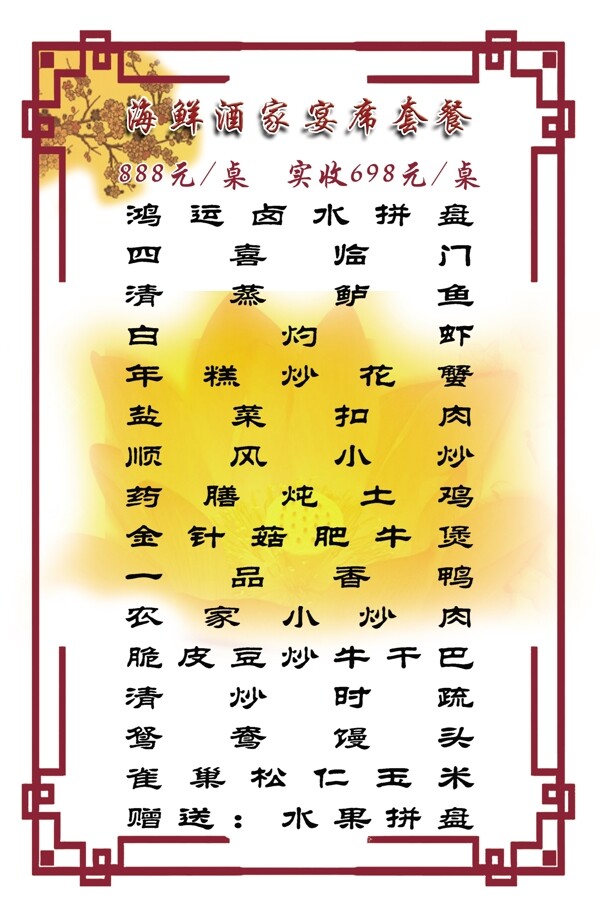 海鲜酒家宴席套餐
888元/桌 实收698元/桌
鸿运卤水拼盘
四喜临门
清蒸鲈鱼
白灼虾
年糕炒花蟹
盐菜扣肉
顺风小炒
药膳炖土鸡
金针菇肥牛煲
一品香鸭
农家小炒肉
脆皮豆炒牛干巴
清炒时疏
鸳鸯馒头
雀巢松仁玉米
赠送：水果拼盘